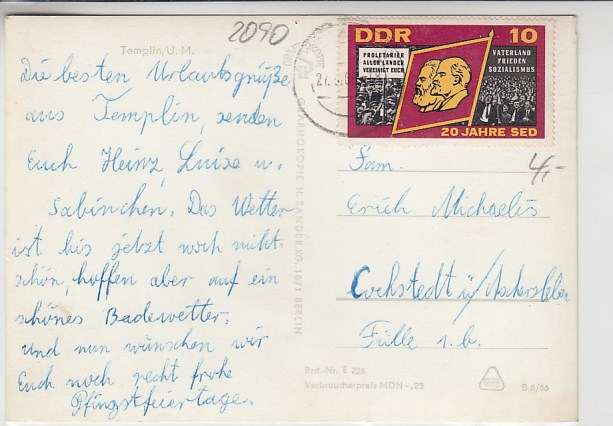 2090
Templin/U. M.
Die besten Urlaubsgrüße
aus Templin, senden
Euch Heinz, Luise u.
Sabinchen. Das Wetter
ist bis jetzt noch nicht
schön, hoffen aber auf ein
schönes Badewetter,
und nun wünschen wir
Euch noch recht frohe
Pfingstfeiertage.
DDR 10
PROLETARIER
ALLER LÄNDER
VEREINIGT EUCH
VATERLAND
FRIEDEN
SOZIALISMUS
20 JAHRE SED
4,-
Fam.
Erich Michaelis
Cochstedt ü/Aschersleben
Fülle 1.b.
Best.-Nr. E 226
Verbraucherpreis MDN -,25
B 6/66